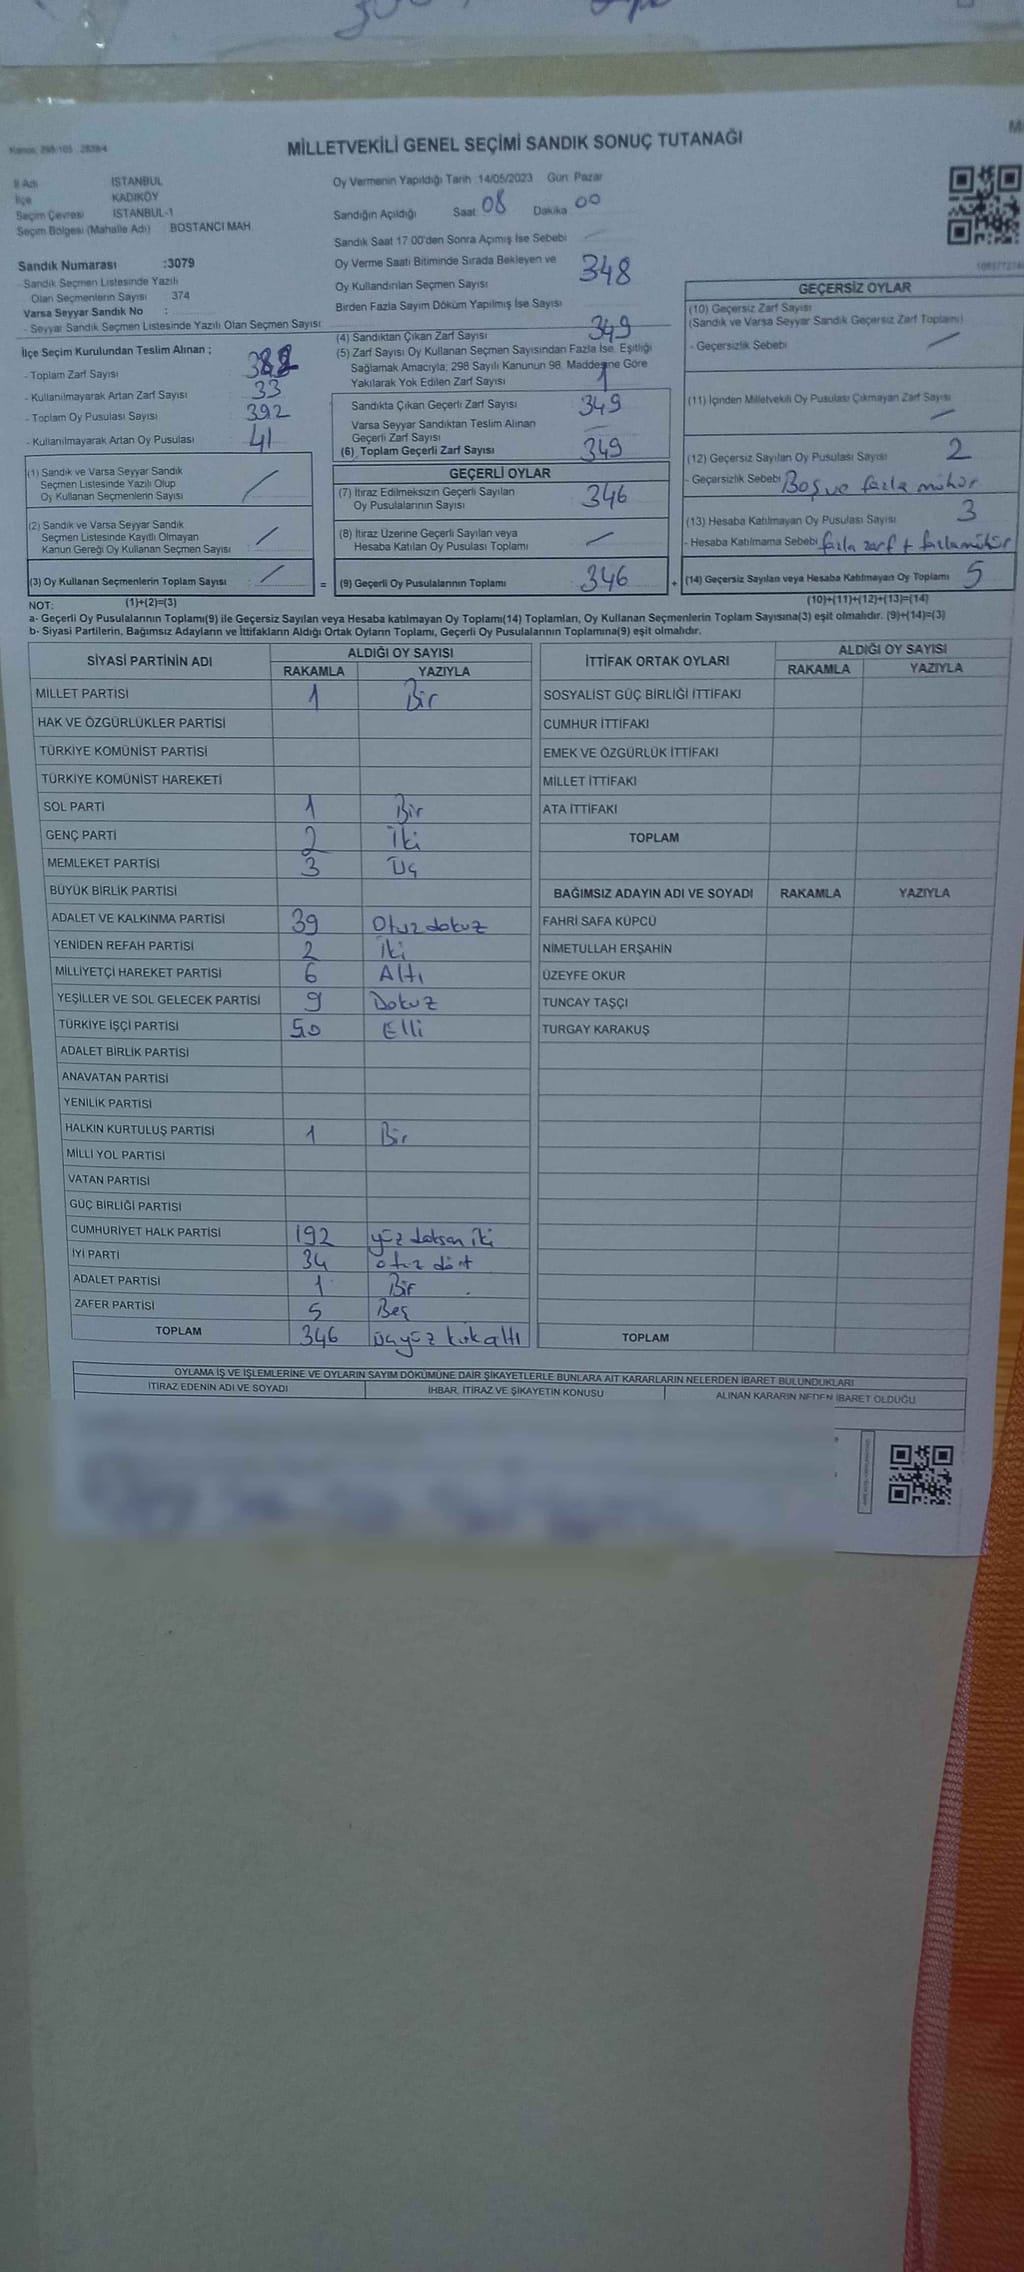 MİLLETVEKİLİ GENEL SEÇİMİ SANDIK SONUÇ TUTANAĞI
İl Adı İSTANBUL
İlçe KADIKÖY
Seçim Çevresi İSTANBUL-1
Seçim Bölgesi (Mahalle Adı) BOSTANCI MAH.
Sandık Numarası :3079
- Sandık Seçmen Listesinde Yazılı
Olan Seçmenlerin Sayısı : 374
Varsa Seyyar Sandık No :
- Seyyar Sandık Seçmen Listesinde Yazılı Olan Seçmen Sayısı:
İlçe Seçim Kurulundan Teslim Alınan ;
- Toplam Zarf Sayısı
- Kullanılmayarak Artan Zarf Sayısı 33
- Toplam Oy Pusulası Sayısı 392
- Kullanılmayarak Artan Oy Pusulası 41
(1) Sandık ve Varsa Seyyar Sandık
Seçmen Listesinde Yazılı Olup
Oy Kullanan Seçmenlerin Sayısı /
(2) Sandık ve Varsa Seyyar Sandık
Seçmen Listesinde Kayıtlı Olmayan
Kanun Gereği Oy Kullanan Seçmen Sayısı /
(3) Oy Kullanan Seçmenlerin Toplam Sayısı /
Oy Vermenin Yapıldığı Tarih :14/05/2023 Gün: Pazar
Sandığın Açıldığı Saat 08 Dakika 00
Sandık Saat 17:00'den Sonra Açılmış İse Sebebi —
Oy Verme Saati Bitiminde Sırada Bekleyen ve
Oy Kullandırılan Seçmen Sayısı 348
Birden Fazla Sayım Döküm Yapılmış İse Sayısı
(4) Sandıktan Çıkan Zarf Sayısı 349
(5) Zarf Sayısı Oy Kullanan Seçmen Sayısından Fazla İse, Eşitliği
Sağlamak Amacıyla, 298 Sayılı Kanunun 98. Maddesine Göre
Yakılarak Yok Edilen Zarf Sayısı 1
Sandıkta Çıkan Geçerli Zarf Sayısı 349
Varsa Seyyar Sandıktan Teslim Alınan
Geçerli Zarf Sayısı —
(6) Toplam Geçerli Zarf Sayısı 349
GEÇERLİ OYLAR
(7) İtiraz Edilmeksizin Geçerli Sayılan
Oy Pusulalarının Sayısı 346
(8) İtiraz Üzerine Geçerli Sayılan veya
Hesaba Katılan Oy Pusulası Toplamı —
= (9) Geçerli Oy Pusulalarının Toplamı 346
GEÇERSİZ OYLAR
(10) Geçersiz Zarf Sayısı
(Sandık ve Varsa Seyyar Sandık Geçersiz Zarf Toplamı)
- Geçersizlik Sebebi —
(11) İçinden Milletvekili Oy Pusulası Çıkmayan Zarf Sayısı —
(12) Geçersiz Sayılan Oy Pusulası Sayısı 2
- Geçersizlik Sebebi Boş ve fazla mühür
(13) Hesaba Katılmayan Oy Pusulası Sayısı 3
- Hesaba Katılmama Sebebi fazla zarf + fazla mühür
+ (14) Geçersiz Sayılan veya Hesaba Katılmayan Oy Toplamı 5
NOT: (1)+(2)=(3) (10)+(11)+(12)+(13)=(14)
a- Geçerli Oy Pusulalarının Toplamı(9) ile Geçersiz Sayılan veya Hesaba katılmayan Oy Toplamı(14) Toplamları, Oy Kullanan Seçmenlerin Toplam Sayısına(3) eşit olmalıdır. (9)+(14)=(3)
b- Siyasi Partilerin, Bağımsız Adayların ve İttifakların Aldığı Ortak Oyların Toplamı, Geçerli Oy Pusulalarının Toplamına(9) eşit olmalıdır.
SİYASİ PARTİNİN ADI ALDIĞI OY SAYISI
RAKAMLA YAZIYLA
MİLLET PARTİSİ 1 Bir
HAK VE ÖZGÜRLÜKLER PARTİSİ
TÜRKİYE KOMÜNİST PARTİSİ
TÜRKİYE KOMÜNİST HAREKETİ
SOL PARTİ 1 Bir
GENÇ PARTİ 2 İki
MEMLEKET PARTİSİ 3 Üç
BÜYÜK BİRLİK PARTİSİ
ADALET VE KALKINMA PARTİSİ 39 Otuz dokuz
YENİDEN REFAH PARTİSİ 2 İki
MİLLİYETÇİ HAREKET PARTİSİ 6 Altı
YEŞİLLER VE SOL GELECEK PARTİSİ 9 Dokuz
TÜRKİYE İŞÇİ PARTİSİ 50 Elli
ADALET BİRLİK PARTİSİ
ANAVATAN PARTİSİ
YENİLİK PARTİSİ
HALKIN KURTULUŞ PARTİSİ 1 Bir
MİLLİ YOL PARTİSİ
VATAN PARTİSİ
GÜÇ BİRLİĞİ PARTİSİ
CUMHURİYET HALK PARTİSİ 192 yüz doksan iki
İYİ PARTİ 34 otuz dört
ADALET PARTİSİ 1 Bir
ZAFER PARTİSİ 5 Beş
TOPLAM 346 üçyüz kırk altı
İTTİFAK ORTAK OYLARI ALDIĞI OY SAYISI
RAKAMLA YAZIYLA
SOSYALİST GÜÇ BİRLİĞİ İTTİFAKI
CUMHUR İTTİFAKI
EMEK VE ÖZGÜRLÜK İTTİFAKI
MİLLET İTTİFAKI
ATA İTTİFAKI
TOPLAM
BAĞIMSIZ ADAYIN ADI VE SOYADI RAKAMLA YAZIYLA
FAHRİ SAFA KÜPCÜ
NİMETULLAH ERŞAHİN
ÜZEYFE OKUR
TUNCAY TAŞÇI
TURGAY KARAKUŞ
TOPLAM
OYLAMA İŞ VE İŞLEMLERİNE VE OYLARIN SAYIM DÖKÜMÜNE DAİR ŞİKAYETLERLE BUNLARA AİT KARARLARIN NELERDEN İBARET BULUNDUKLARI
İTİRAZ EDENİN ADI VE SOYADI İHBAR, İTİRAZ VE ŞİKAYETİN KONUSU ALINAN KARARIN NEDEN İBARET OLDUĞU